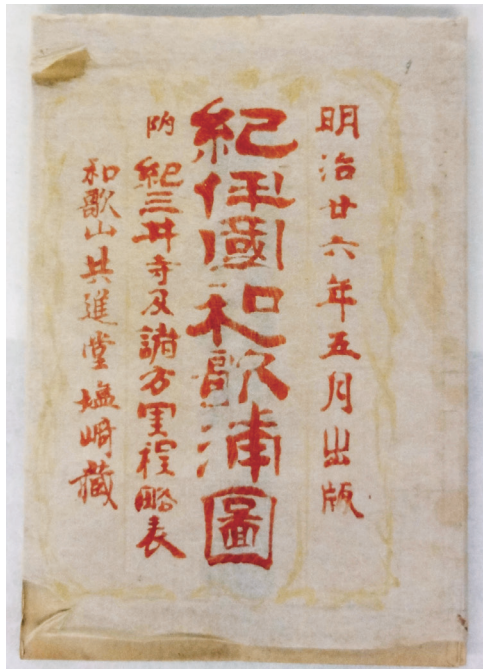 明治廿六年五月出版
紀伊國和歌浦圖
附 紀三井寺及諸方里程略表
和歌山共進堂塩崎藏